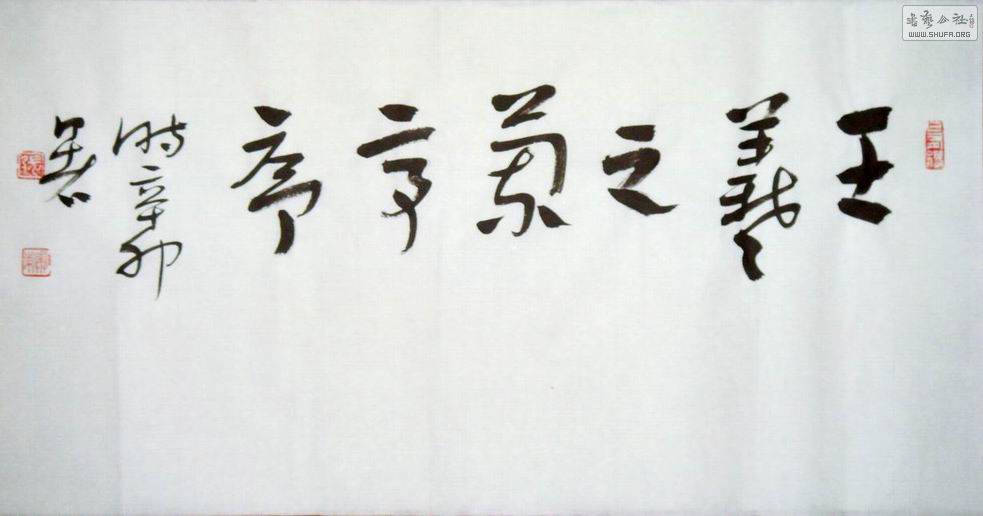 王羲之蘭亭序
時辛卯
書艺公社
WWW.SHUFA.ORG